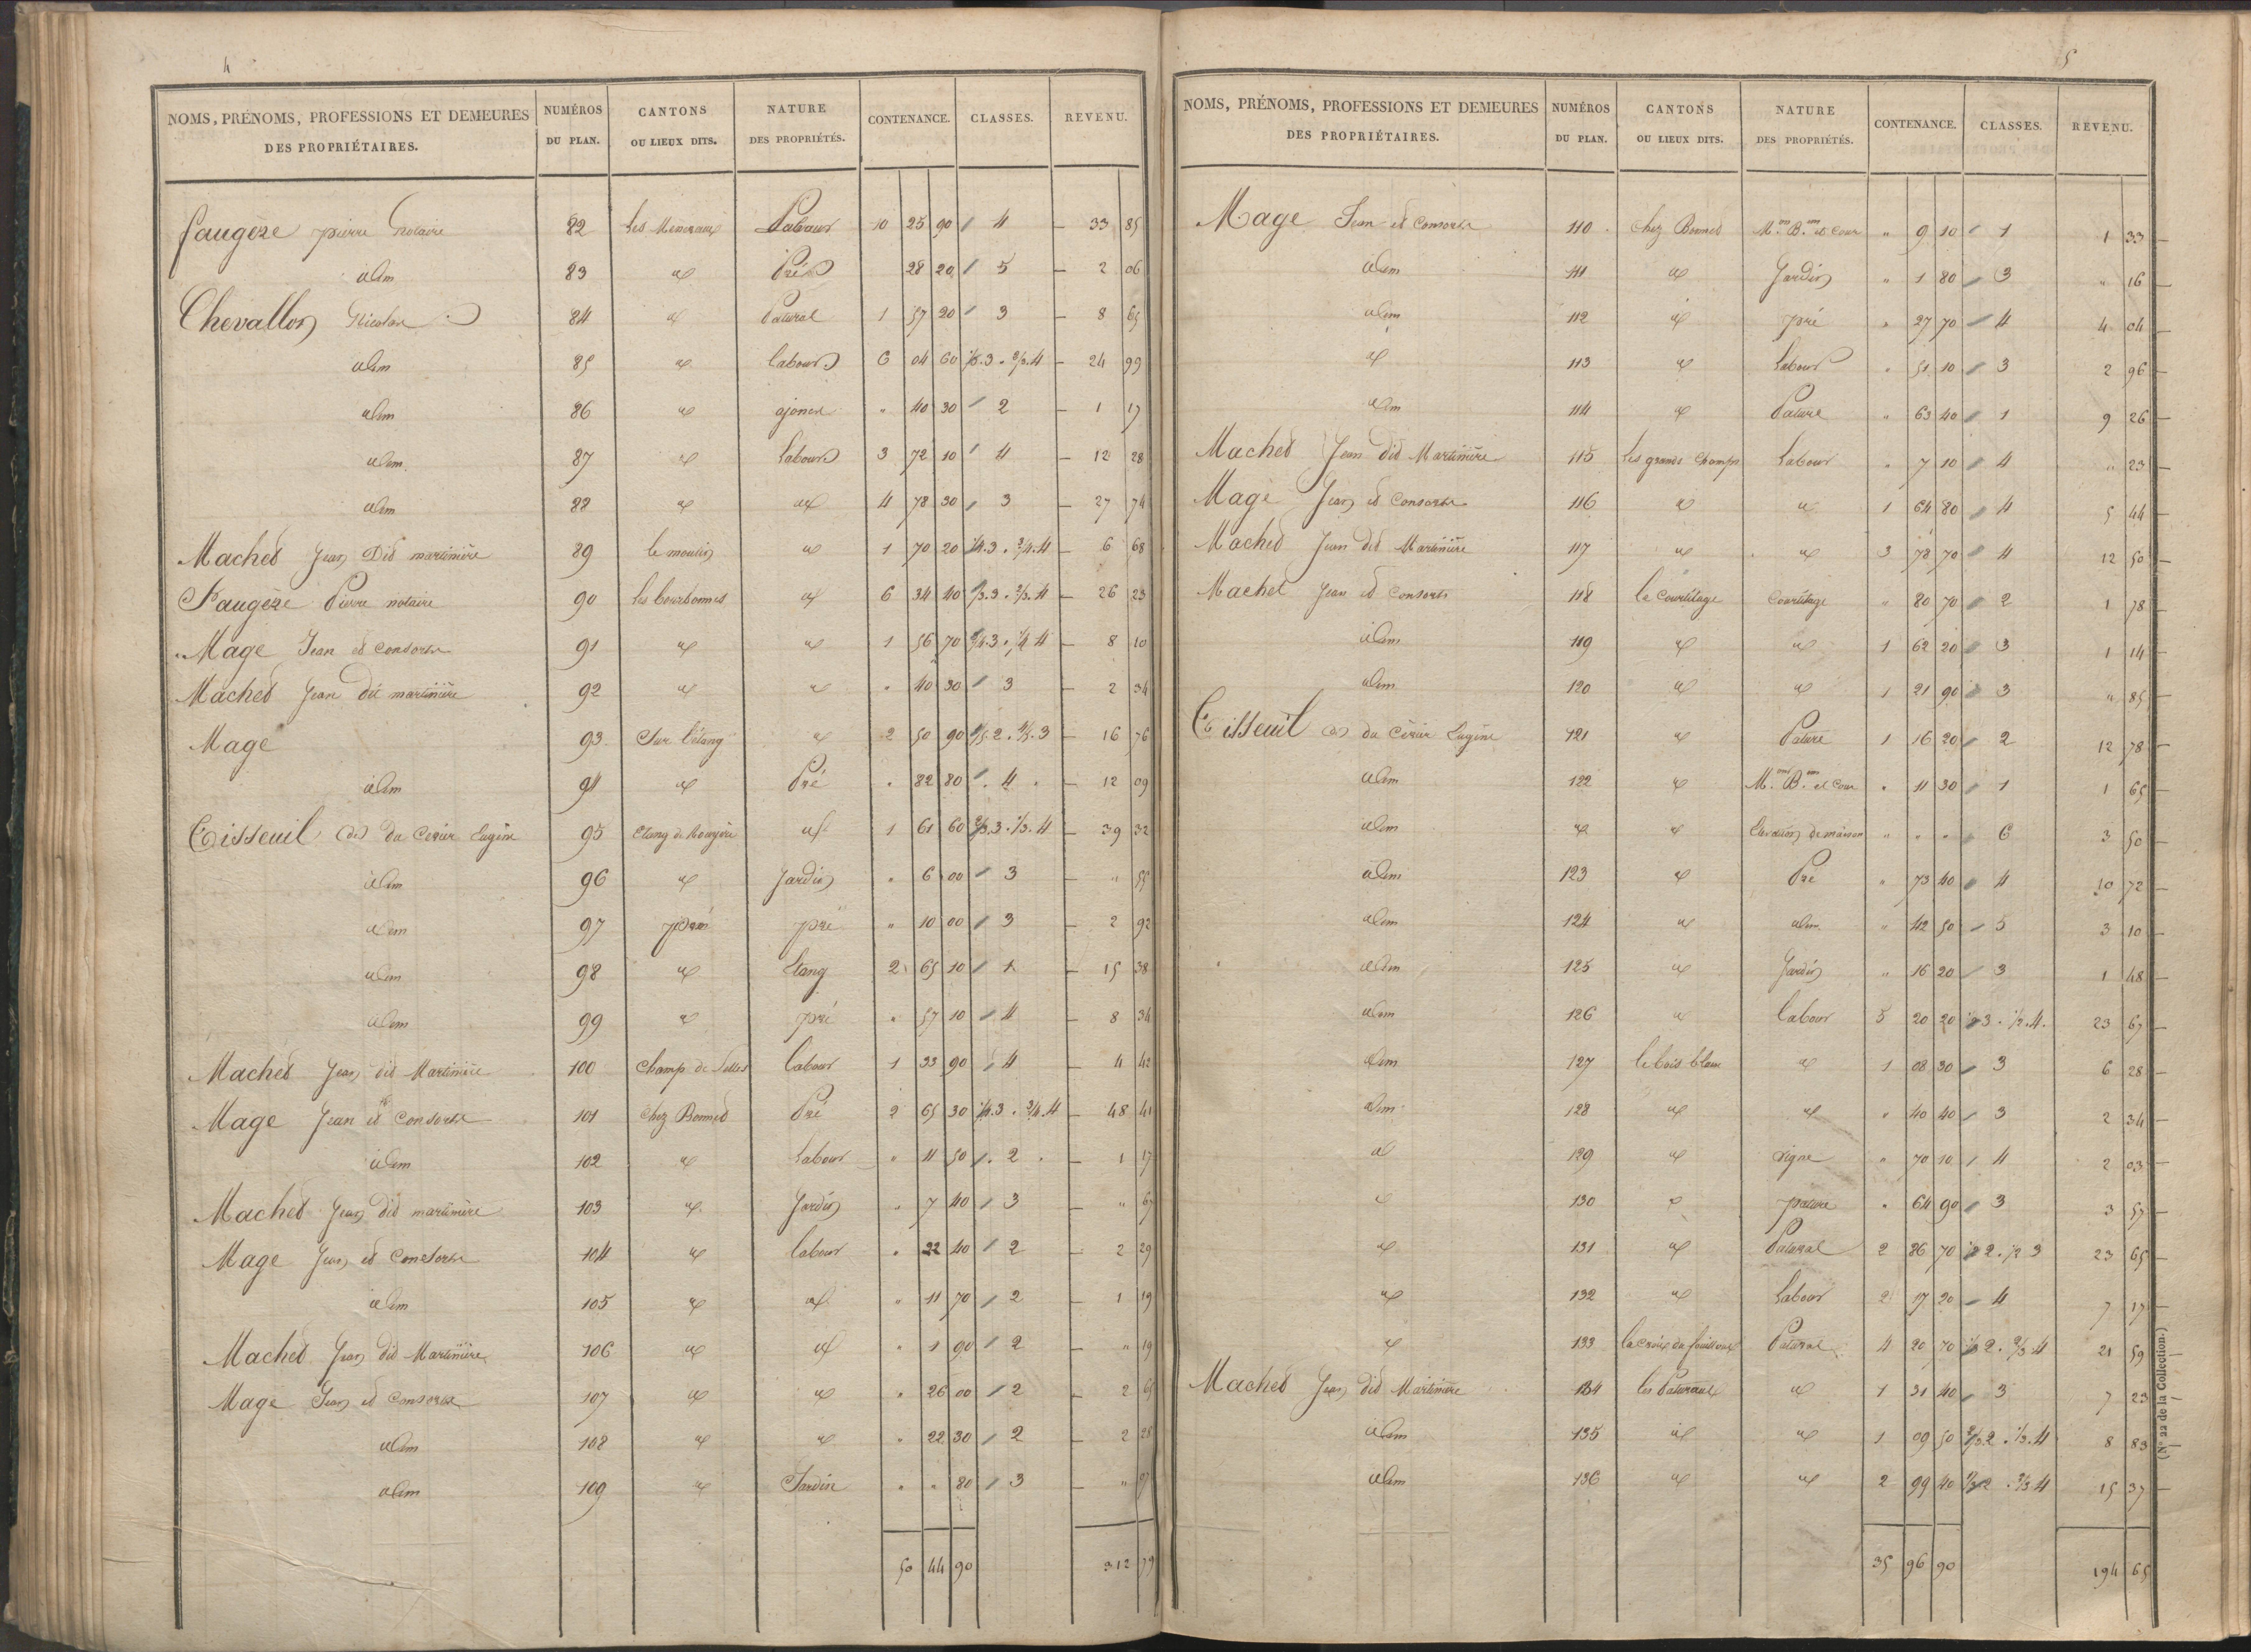 4
NOMS, PRÉNOMS, PROFESSIONS ET DEMEURES DES PROPRIÉTAIRES. NUMÉROS DU PLAN. CANTONS OU LIEUX DITS. NATURE DES PROPRIÉTÉS. CONTENANCE. CLASSES. REVENU.
faugèze pierre notaire 82 Les Labour 10 25 90 / 4 – 33 85
idem 83 id Pré 28 20 / 5 – 2 06
Chevallon Nicolas 84 id Patural 1 57 20 / 3 – 8 65
idem 85 id labour 6 04 60 1/3.3. 2/3.4 – 24 99
idem 86 id ajoncs " 40 30 / 2 – 1 17
idem 87 id labour 3 72 10 / 4 – 12 28
idem 88 id id 4 78 30 / 3 – 27 74
Machet Jean Dit martinière 89 le moulin id 1 70 20 1/4.3. 3/4.4 – 6 68
Faugèze Pierre notaire 90 id 6 34 40 1/3.3. 2/3.4 – 26 23
Mage Jean et consorts 91 id id 1 56 70 3/4.3. 1/4 4 – 8 10
Machet Jean dit martinière 92 id id " 40 30 / 3 – 2 34
Mage 93 Sur l'étang id 2 50 90 1/5.2. 4/5.3 – 16 76
idem 94 id Pré " 82 80 / 4 – 12 09
Tisseuil (de) du Cerier Eugène 95 Etang de id 1 61 60 2/3.3. 1/3.4 – 39 32
idem 96 id Jardin " 6 00 / 3 – " 55
idem 97 pré " 10 00 / 3 – 2 92
idem 98 id Etang 2 65 10 / 1 – 15 38
idem 99 id pré " 57 10 / 4 – 8 34
Machet Jean dit Martinière 100 Champ de labour 1 33 90 / 4 – 4 42
Mage Jean et consorts 101 Chez Bonnet Pré 2 65 30 1/4.3. 3/4.4 – 48 41
idem 102 id Labour " 11 50 / 2 – 1 17
Machet Jean dit martinière 103 id Jardin " 7 40 / 3 – " 67
Mage Jean et Consorts 104 id labour " 22 40 / 2 – 2 29
idem 105 id id " 11 70 / 2 – 1 19
Machet Jean dit Martinière 106 id id " 1 90 / 2 – " 19
Mage Jean et Consorts 107 id id " 26 00 / 2 – 2 65
idem 108 id id " 22 30 / 2 – 2 28
idem 109 id Jardin " " 80 / 3 – " 07
50 44 90 312 79
5
NOMS, PRÉNOMS, PROFESSIONS ET DEMEURES DES PROPRIÉTAIRES. NUMÉROS DU PLAN. CANTONS OU LIEUX DITS. NATURE DES PROPRIÉTÉS. CONTENANCE. CLASSES. REVENU.
Mage Jean et Consorts 110 Chez Bonnet Mon. Bon. et Cour " 9 10 / 1 1 33
idem 111 id Jardin " 1 80 / 3 " 16
idem 112 id pré " 27 70 / 4 4 04
id 113 id Labour " 51 10 / 3 2 96
idem 114 id Pature " 63 40 / 1 9 26
Machet Jean dit Martinière 115 Les grands Champs Labour " 7 10 / 4 " 23
Mage Jean et Consorts 116 id id 1 64 80 / 4 5 44
Machet Jean dit Martinière 117 id id 3 78 70 / 4 12 50
Machet Jean et Consorts 118 le Courtilage Courtilage " 80 70 / 2 1 78
idem 119 id id 1 62 20 / 3 1 14
idem 120 id id 1 21 90 / 3 " 85
Tisseuil (de) du Cerier Eugène 121 id Pature 1 16 20 / 2 12 78
idem 122 id Mon. Bon. et Cour " 11 30 / 1 1 65
idem id id de maison " " " 6 3 50
idem 123 id Pré " 73 40 / 4 10 72
idem 124 id idem " 42 50 / 5 3 10
idem 125 id Jardin " 16 20 / 3 1 48
idem 126 id labour 5 20 20 1/2 3. 1/2.4. 23 67
idem 127 le bois blanc id 1 08 30 / 3 6 28
idem 128 id id " 40 40 / 3 2 34
id 129 id vigne " 70 10 / 4 2 03
id 130 id pature " 64 90 / 3 3 57
id 131 id Patural 2 86 70 1/2 2. 1/2 3 23 65
id 132 id Labour 2 17 20 / 4 7 17
id 133 la croix du Patural 4 20 70 1/3 2. 2/3.4 21 59
Machet Jean dit Martinière 134 les Paturaux id 1 31 40 / 3 7 23
idem 135 id id 1 09 50 2/3 2. 1/3.4 8 83
idem 136 id id 2 99 40 1/3 2. 2/3 4 15 37
35 96 90 194 65
(N° 22 de la Collection.)